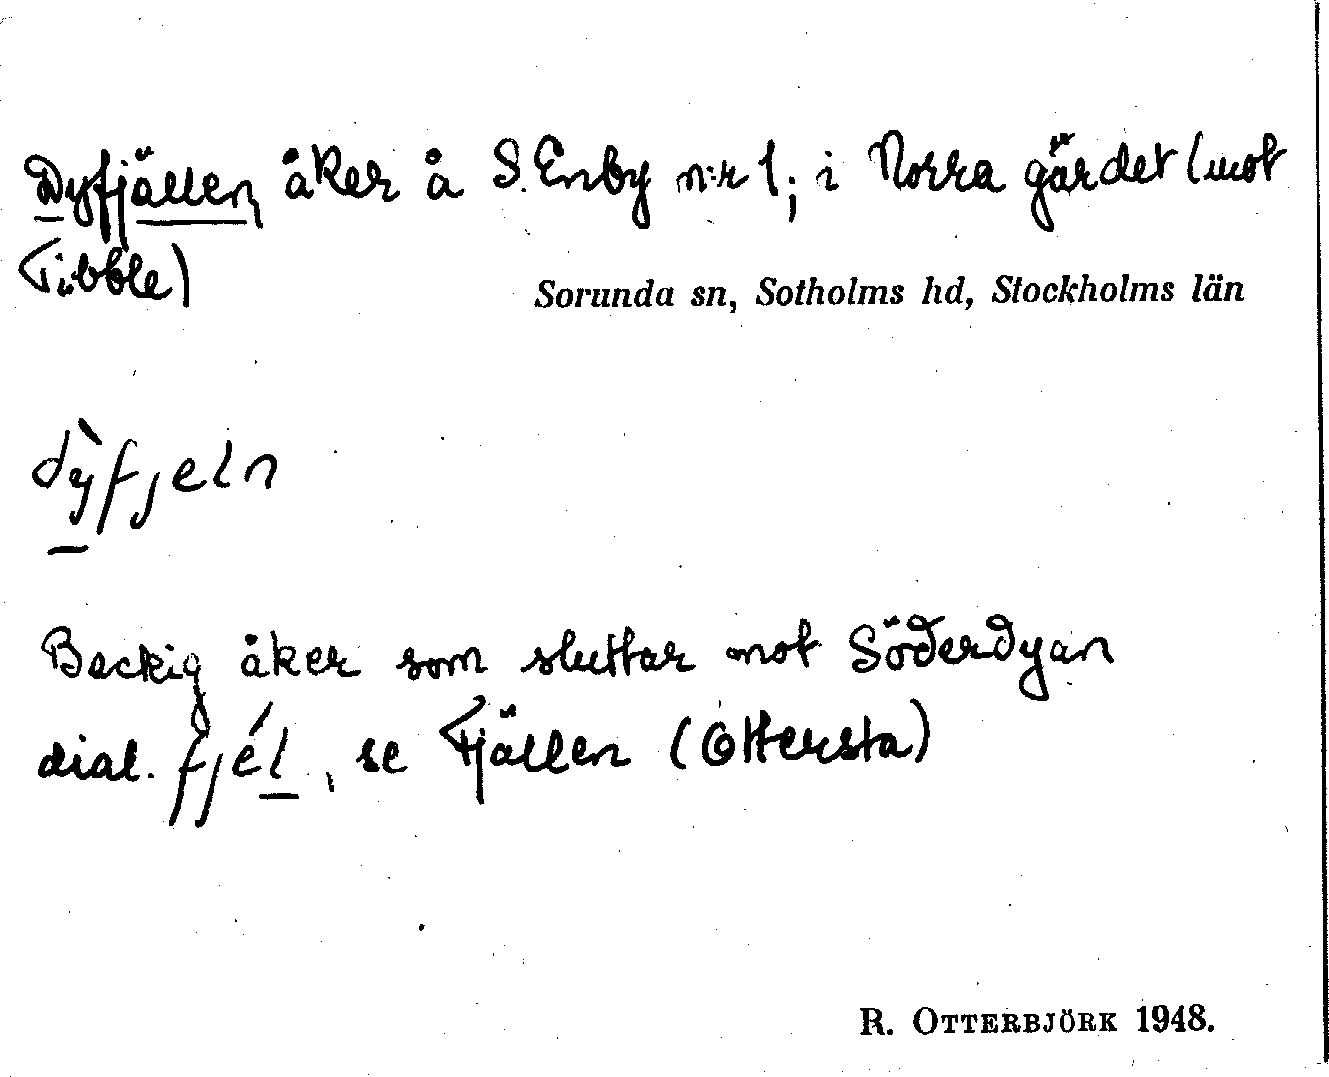 Dyfjällen, åker å S. Enby n:r 1; i Norra gärdet (mot
Tibble)
Sorunda sn, Sotholms hd, Stockholms län
dỳfjeln
Backig åker som sluttar mot Söderdyan
dial. fjél, se Fjällen (Ottersta)
R. OTTERBJÖRK 1948.